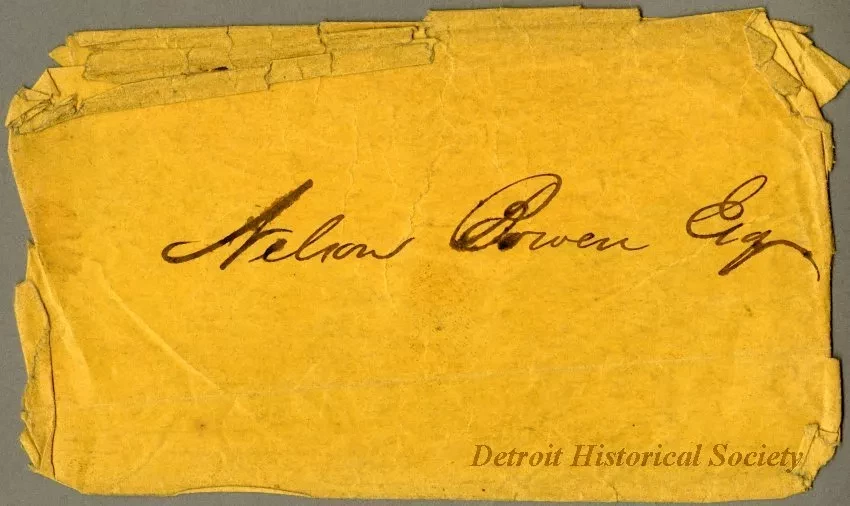 Nelson Bowen Esq
Detroit Historical Society